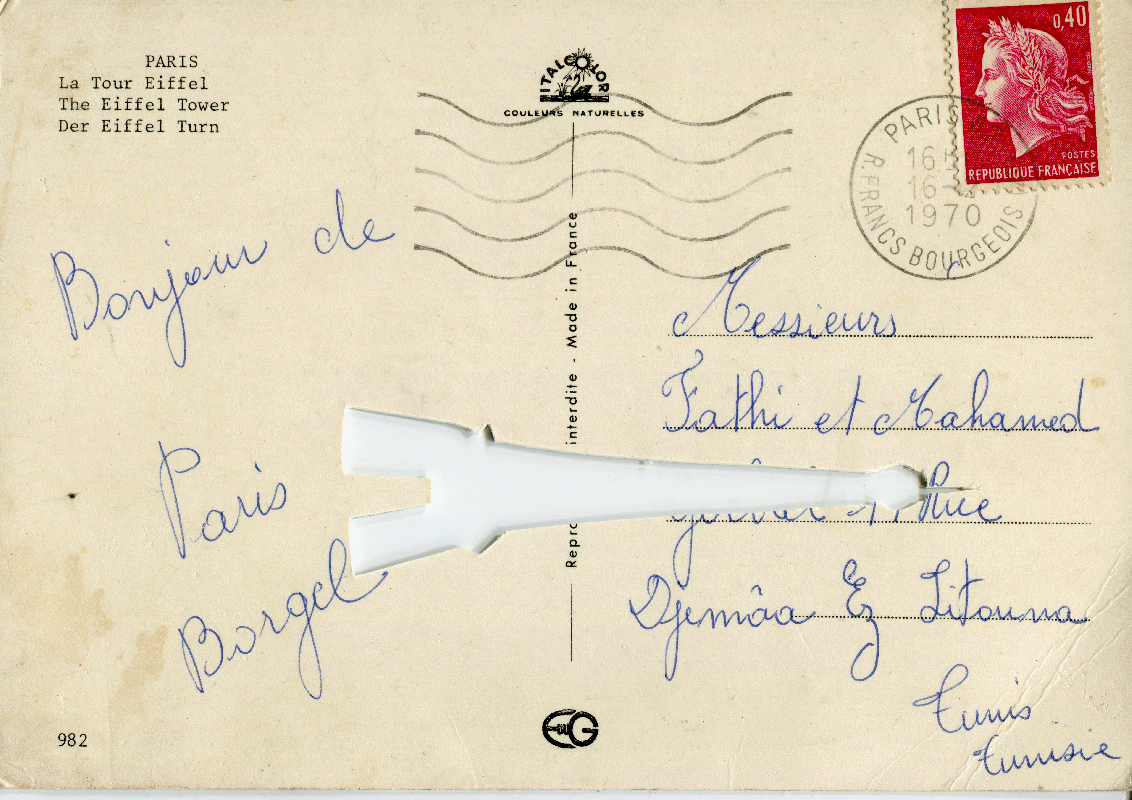 PARIS
La Tour Eiffel
The Eiffel Tower
Der Eiffel Turn
ITALCOLOR
COULEURS NATURELLES
0,40
POSTES
REPUBLIQUE FRANÇAISE
PARIS
16
16
1970
R. FRANCS BOURGEOIS
Bonjour de
Paris
Borgel
interdite - Made in France
Messieurs
Fathi et Mohamed
Rue
Djemâa Ez Zitouna
Tunis
Tunisie
982
EG